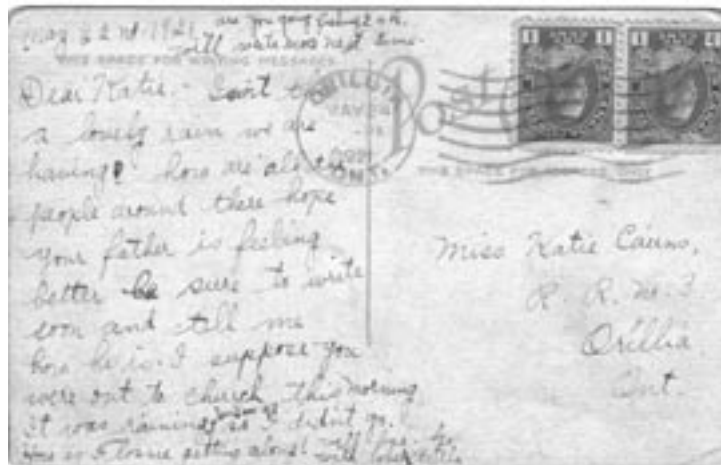 are you going fishing 24th.
May 22nd 1921 will write more next time.
THIS SPACE FOR WRITING MESSAGES
Dear Katie:- Isn't this
a lovely rain we are
having? how are all the
people around there hope
your father is feeling
better be sure to write
soon and tell me
how he is. I suppose you
were out to church this morning
it was raining so I didn't go.
How is Flossie getting along?
with love
ORILLIA
MAY 24
1921
ONT.
Post
THIS SPACE FOR ADDRESS ONLY
1 1 1 1
Miss Katie Cairns,
R. R. No. 3
Orillia
Ont.